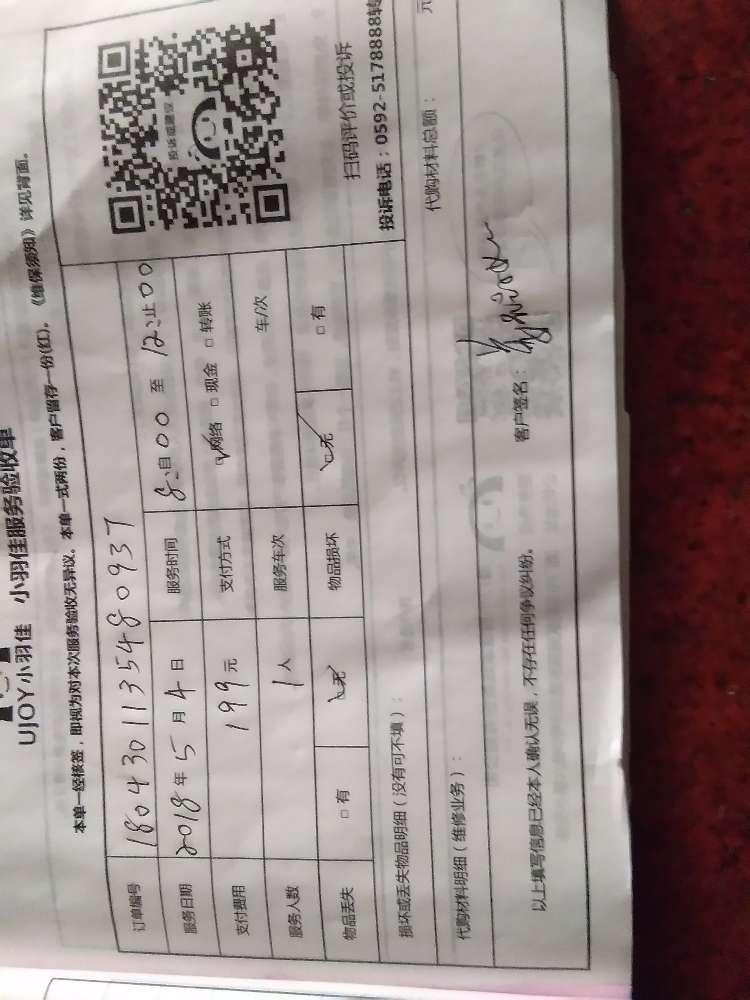 UJOY小羽佳 小羽佳服务验收单
本单一经核签，即视为对本次服务验收无异议。本单一式两份，客户留存一份(红)。《维保须知》详见背面。
订单编号 180430113548093７
服务日期 2018年5月4日 服务时间 8:00 至 12:00止
支付费用 199元 支付方式 网络 □现金 □转账
服务人数 1人 服务车次 车/次
物品丢失 □有 无 物品损坏 无 □有
投诉或建议
扫码评价或投诉
投诉电话：0592-5178888转
损坏或丢失物品明细（没有可不填）：
代购材料明细（维修业务）： 代购材料总额： 元
以上填写信息已经本人确认无误，不存在任何争议纠纷。 客户签名：